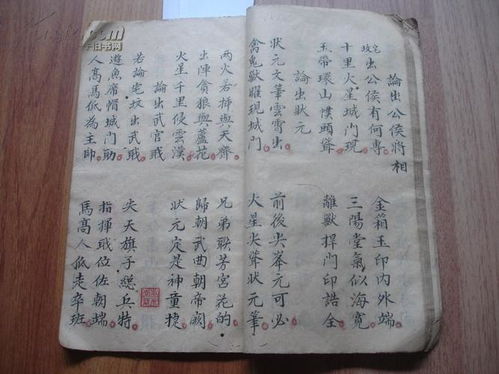 論出公侯將相
宅坟出公侯有何專 金箱玉印內外端
十里火星城門現 三陽堂氣似海寬
玉帶環山幞頭聳 離獸捍門印誥全
論出狀元
狀元文筆雲霄出 前後尖峯元可必
禽鬼獸羅現城門 火星尖聳狀元筆
兩火若揷近天齊 兄弟聯芳宮花的
出陣貪狼與蘆花 歸朝武曲朝帝闕
火星千里侵雲漢 狀元定是神童捷
論出武官職
若論宅坟出武職 尖天旗子總兵特
遊魚席帽城門助 指揮職位佐朝端
人高馬低為主帥 馬高人低走卒班
旧书网